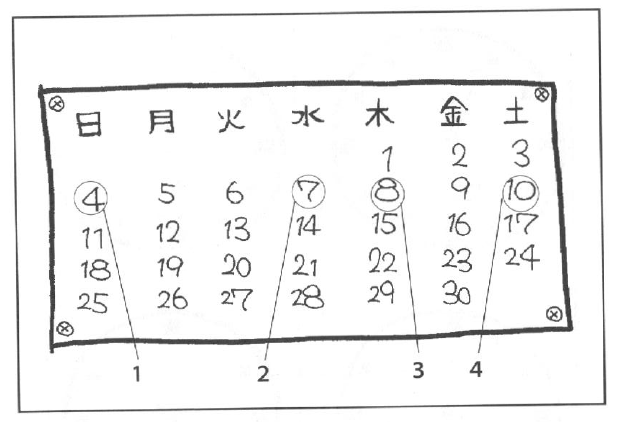 日 月 火 水 木 金 土
1 2 3
4 5 6 7 8 9 10
11 12 13 14 15 16 17
18 19 20 21 22 23 24
25 26 27 28 29 30
1 2 3 4